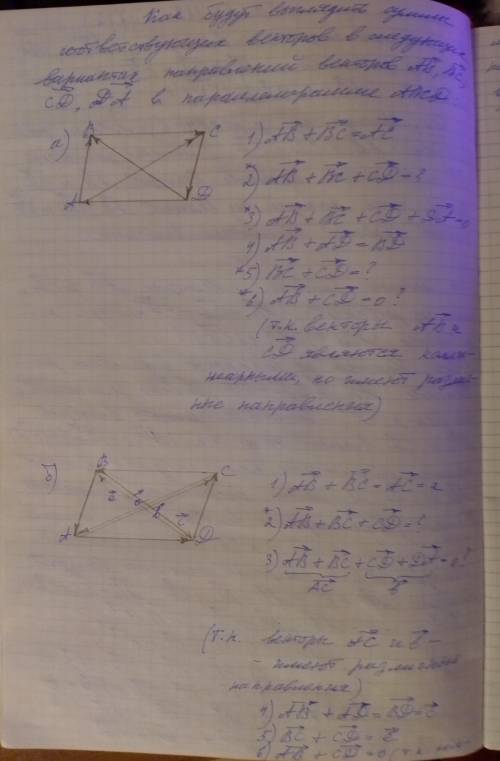 Как будут выглядить суммы
соответствующих векторов в следующих
вариантах направлений векторов AB, BC,
CD, DA в параллелограмме ABCD.
а)
B
C
A
D
1) AB + BC = AC
*2) AB + BC + CD = ?
*3) AB + BC + CD + DA = 0
4) AB + AD = BD
*5) BC + CD = ?
*6) AB + CD = 0 ?
(т.к. векторы AB и
CD являются колли-
неарными, но имеют различ-
ные направления)
б)
B
C
A
D
1) AB + BC = AC = a
*2) AB + BC + CD = ?
3) AB + BC + CD + DA = 0 ?
AC
(т.к. векторы AC и в -
- имеют различные
направления)
4) AB + AD = BD = c
5) BC + CD = c
6) AB + CD = 0 (т.к.